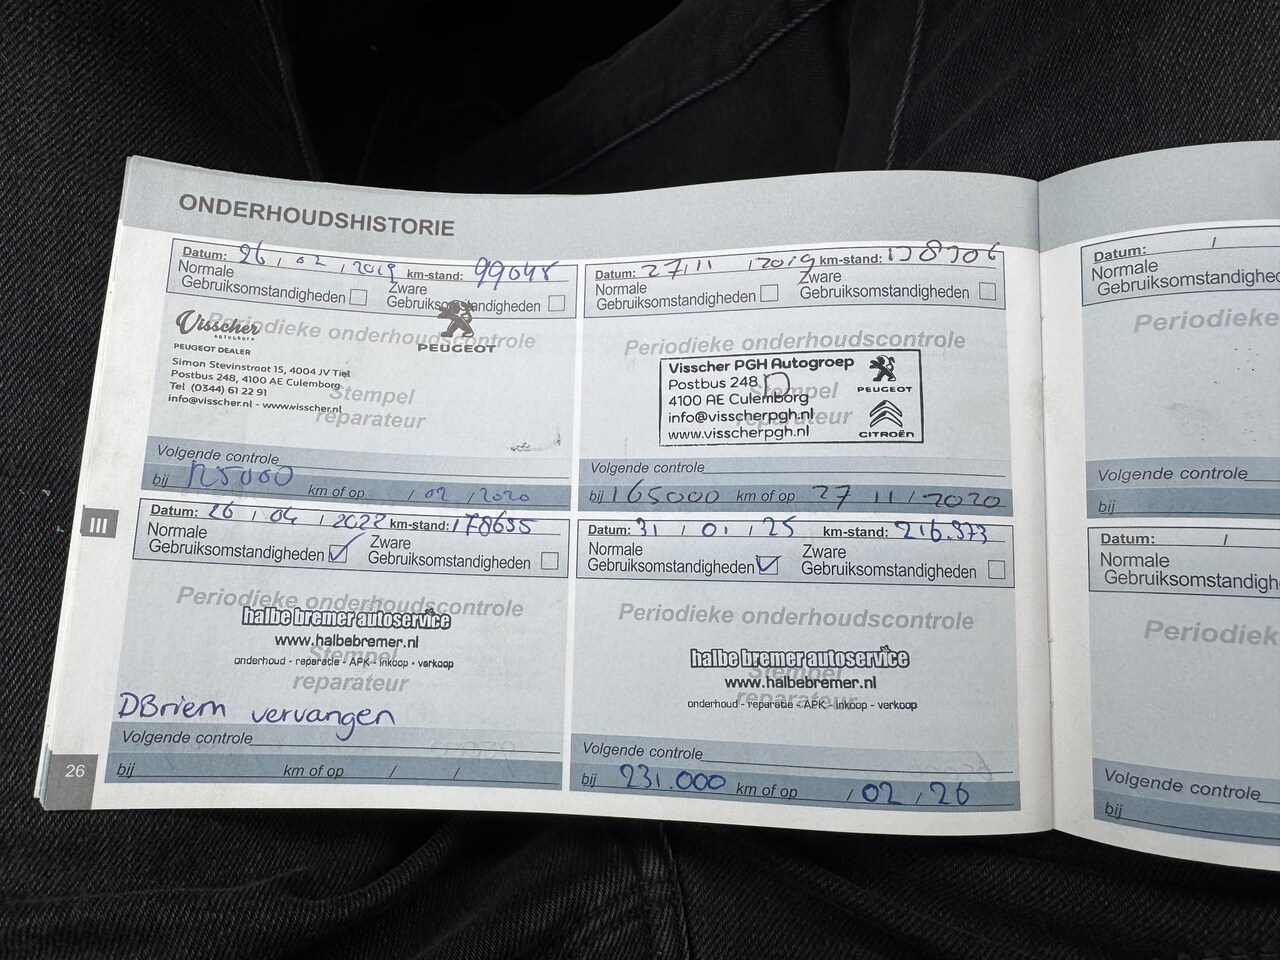 ONDERHOUDSHISTORIE
Datum: 26 / 02 / 2019 km-stand: 99048
Normale Gebruiksomstandigheden
Zware Gebruiksomstandigheden
Periodieke onderhoudscontrole
Visscher
AUTOGROEP
PEUGEOT DEALER
PEUGEOT
Simon Stevinstraat 15, 4004 JV Tiel
Postbus 248, 4100 AE Culemborg
Tel (0344) 61 22 91
info@visscher.nl - www.visscher.nl
Stempel
reparateur
Volgende controle
bij 125000 km of op / 02 / 2020
Datum: 27 / 11 / 2019 km-stand:
Normale Gebruiksomstandigheden
Zware Gebruiksomstandigheden
Periodieke onderhoudscontrole
Visscher PGH Autogroep
Postbus 248
4100 AE Culemborg
info@visscherpgh.nl
www.visscherpgh.nl
PEUGEOT
CITROËN
Stempel
reparateur
Volgende controle
bij 165000 km of op 27 11 / 2020
III
Datum: 26 / 04 / 2022 km-stand: 178635
Normale Gebruiksomstandigheden
Zware Gebruiksomstandigheden
Periodieke onderhoudscontrole
halbe bremer autoservice
www.halbebremer.nl
onderhoud - reparatie - APK - inkoop - verkoop
Stempel
reparateur
DBriem vervangen
Volgende controle
bij km of op / /
Datum: 31 / 01 / 25 km-stand: 216.973
Normale Gebruiksomstandigheden
Zware Gebruiksomstandigheden
Periodieke onderhoudscontrole
halbe bremer autoservice
www.halbebremer.nl
onderhoud - reparatie - APK - inkoop - verkoop
Stempel
reparateur
Volgende controle
bij 231.000 km of op / 02 / 26
26
Datum: /
Normale
Gebruiksomstandigh
Periodieke
Volgende controle
bij
Datum: /
Normale
Gebruiksomstandigh
Periodiek
Volgende controle
bij